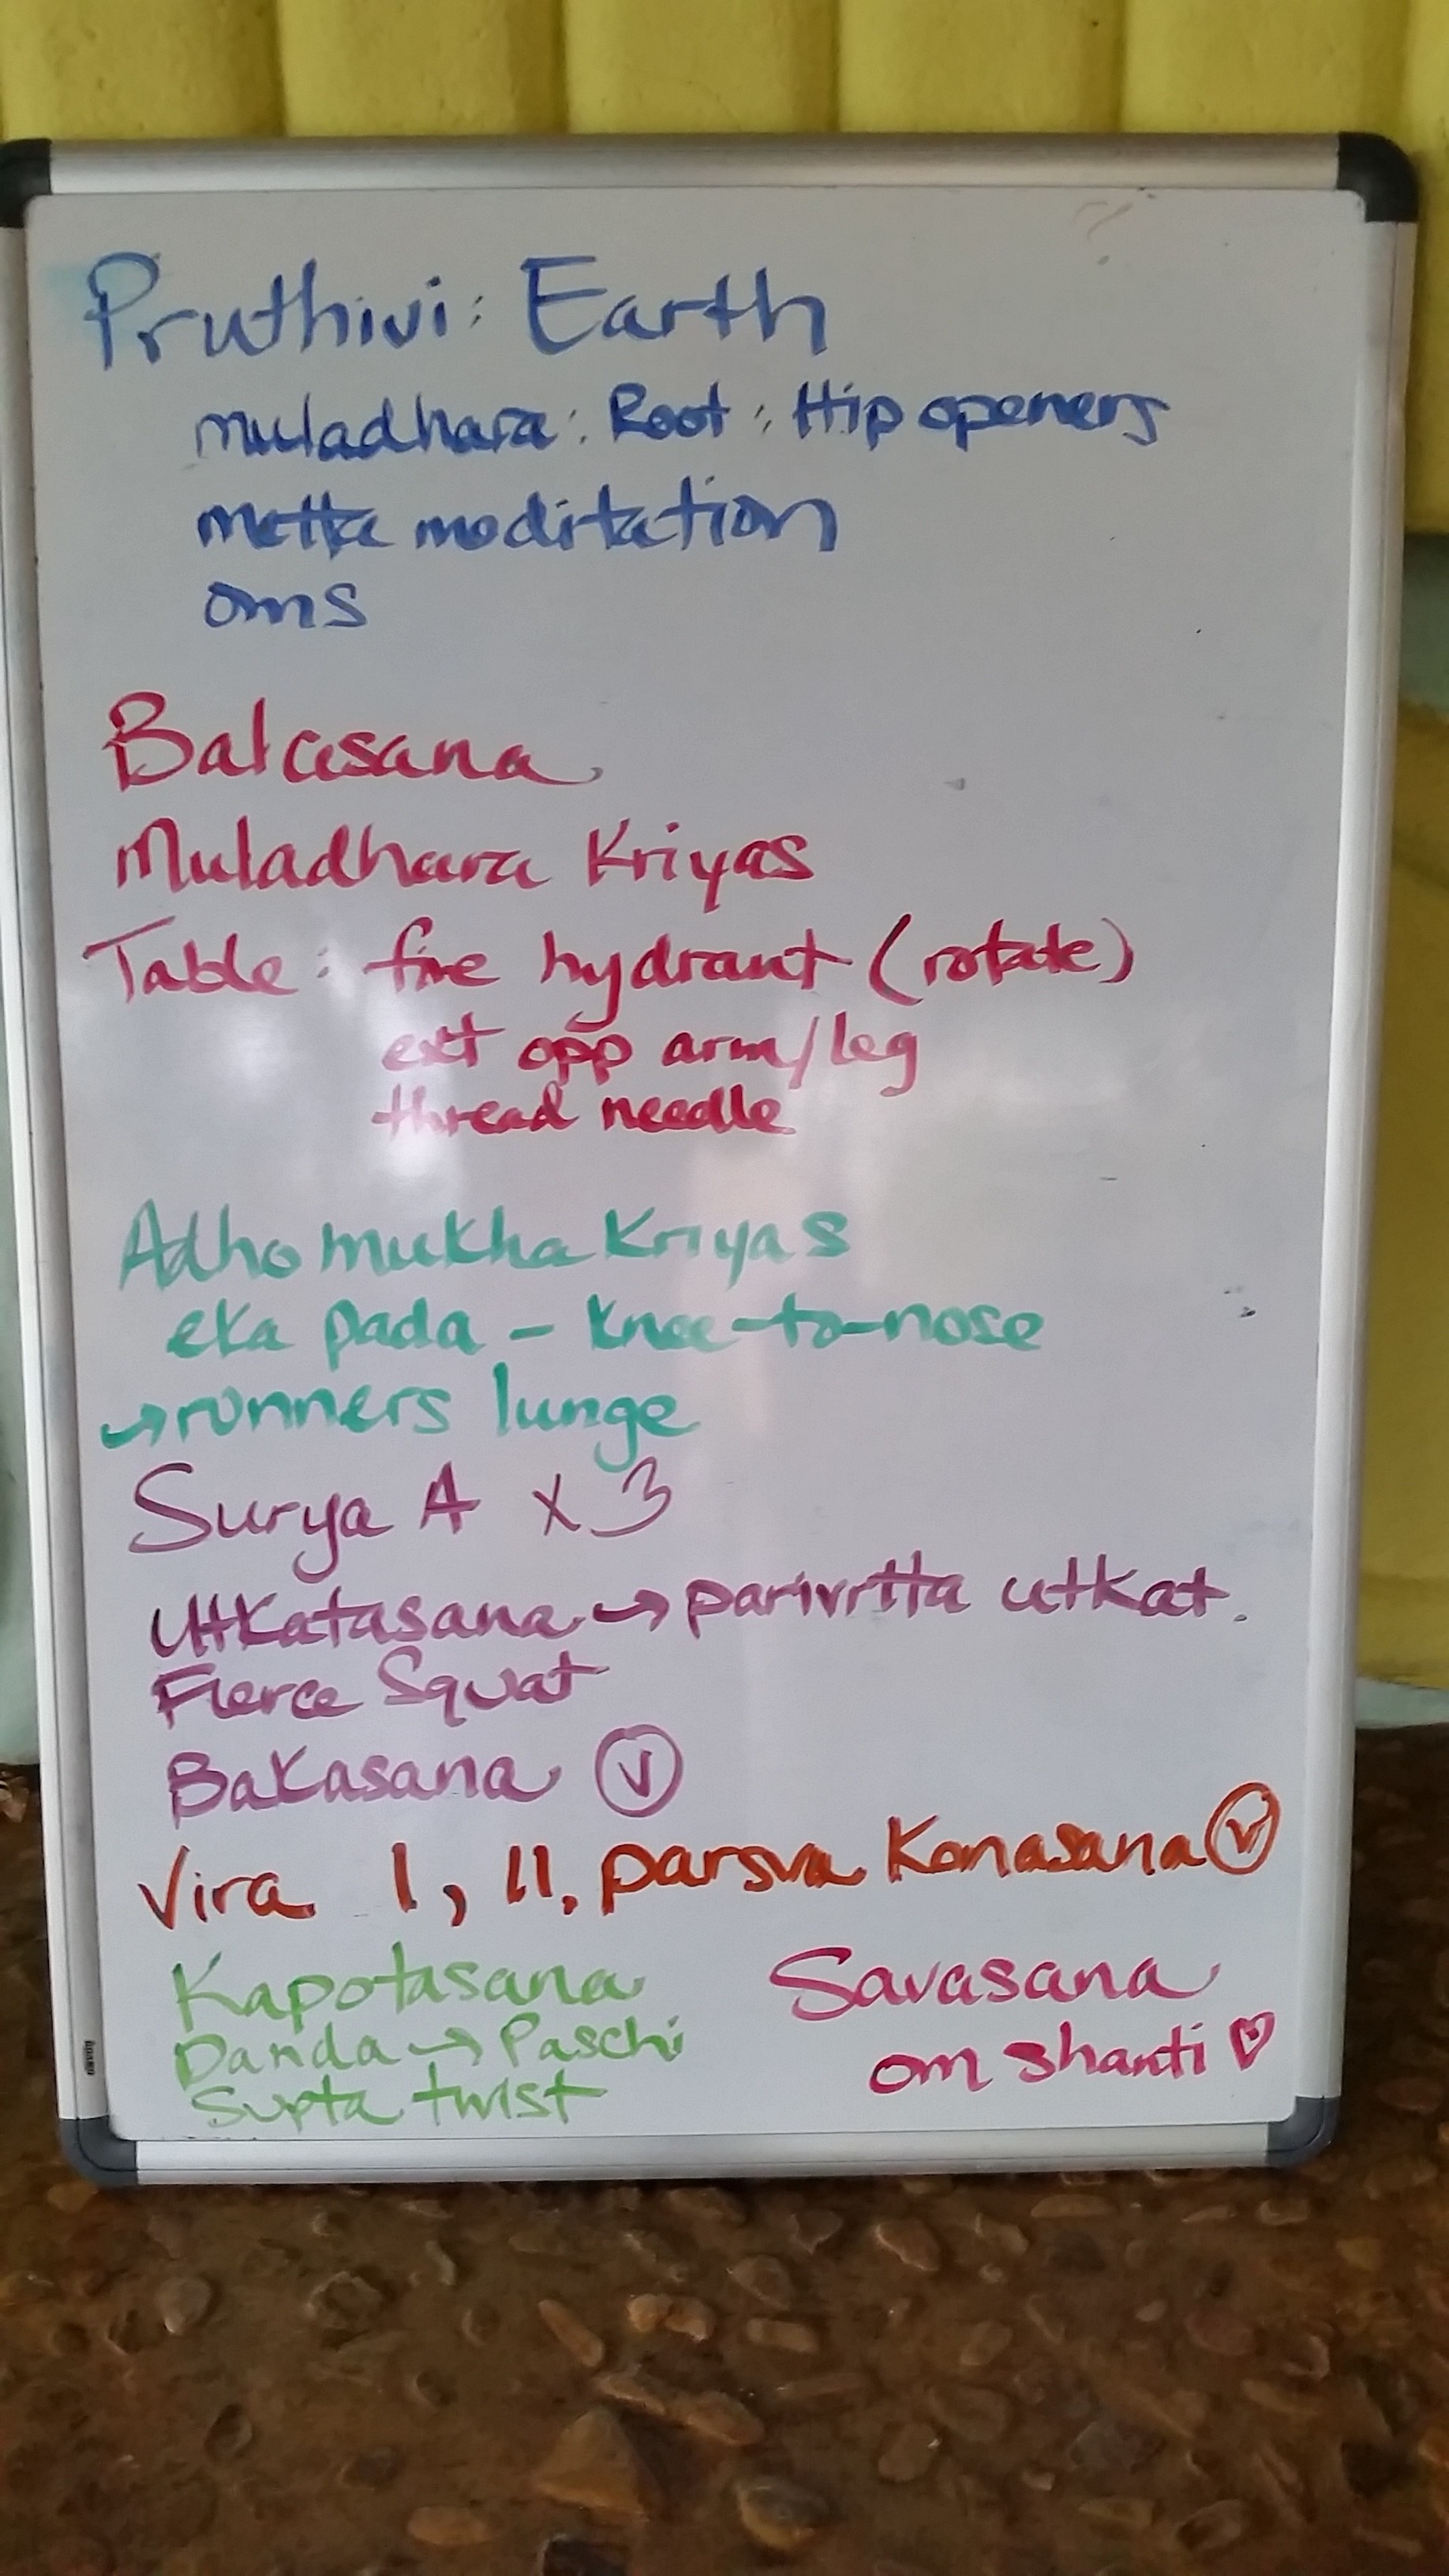 Pruthivi: Earth
muladhara: Root: Hip openers
metta meditation
oms
Balasana
Muladhara Kriyas
Table: fire hydrant (rotate)
ext opp arm/leg
thread needle
Adho mukha Kriyas
eka pada - knee-to-nose
→runners lunge
Surya A x 3
Utkatasana → parivrtta utkat.
Fierce Squat
Bakasana Ⓥ
Vira I, II, parsva Konasana Ⓥ
Kapotasana
Danda → Paschi
Supta twist
Savasana
om shanti ♡